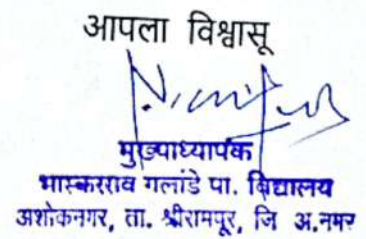 आपला विश्वासू
मुख्याध्यापक
भास्करराव गलांडे पा. विद्यालय
अशोकनगर, ता. श्रीरामपूर, जि अ.नगर